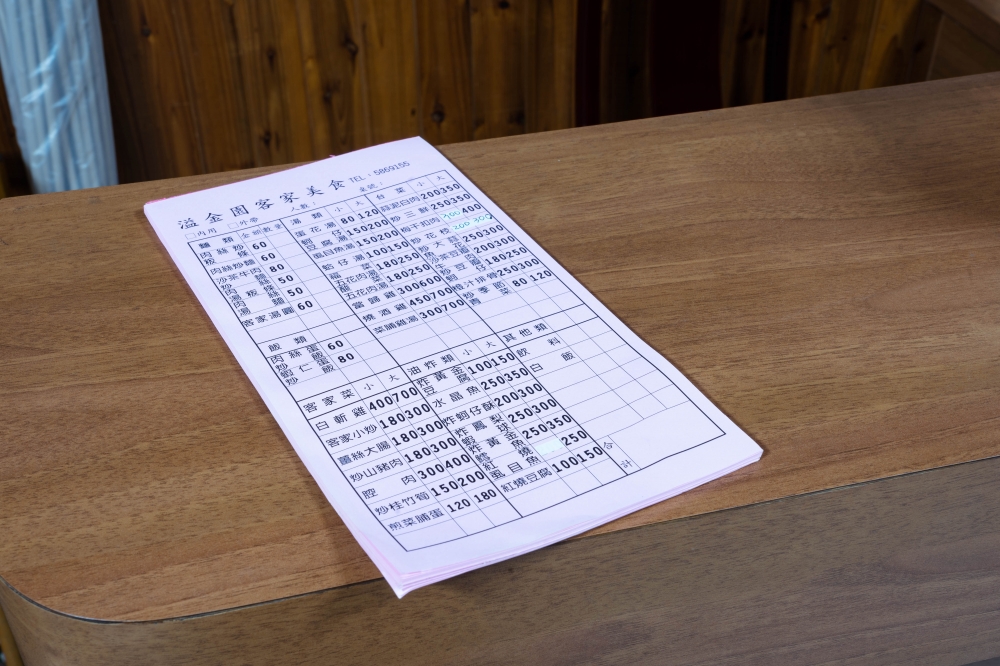 溢金園客家美食 TEL：5869155
□內用 □外帶 人數： 桌號：
麵類 金額 數量
肉絲炒粄條 60
肉絲炒麵 60
沙茶牛肉炒麵 80
肉絲湯粄條 50
肉絲湯麵 50
客家湯圓 60
飯類
肉絲蛋炒飯 60
蝦仁蛋炒飯 80
湯類 小 大
蛋花湯 80 120
蚵仔豆腐湯 150 200
虱目魚湯 150 200
蛤仔湯 100 150
福菜五花肉湯 180 250
五花肉湯 180 250
當歸雞 300 600
燒酒雞 450 700
菜脯雞湯 300 700
台菜 小 大
蒜泥白肉 200 350
炒三鮮 250 350
梅干扣肉 300 400
炒花枝 200 300
炒大 250 300
沙茶 200 300
炒豆 180 250
橙汁排骨 250 300
炒季節青菜 80 120
客家菜 小 大
白斬雞 400 700
客家小炒 180 300
薑絲大腸 180 300
炒山豬肉 180 300
肉 300 400
炒桂竹筍 150 200
煎菜脯蛋 120 180
油炸類 小 大
炸黃金豆腐 100 150
水晶魚 250 350
炸蚵仔酥 200 300
炸鳳梨蝦球 250 300
炸黃金 魚 250 350
紅燒虱目魚 250
紅燒豆腐 100 150
其他類
飲料
白飯
合計